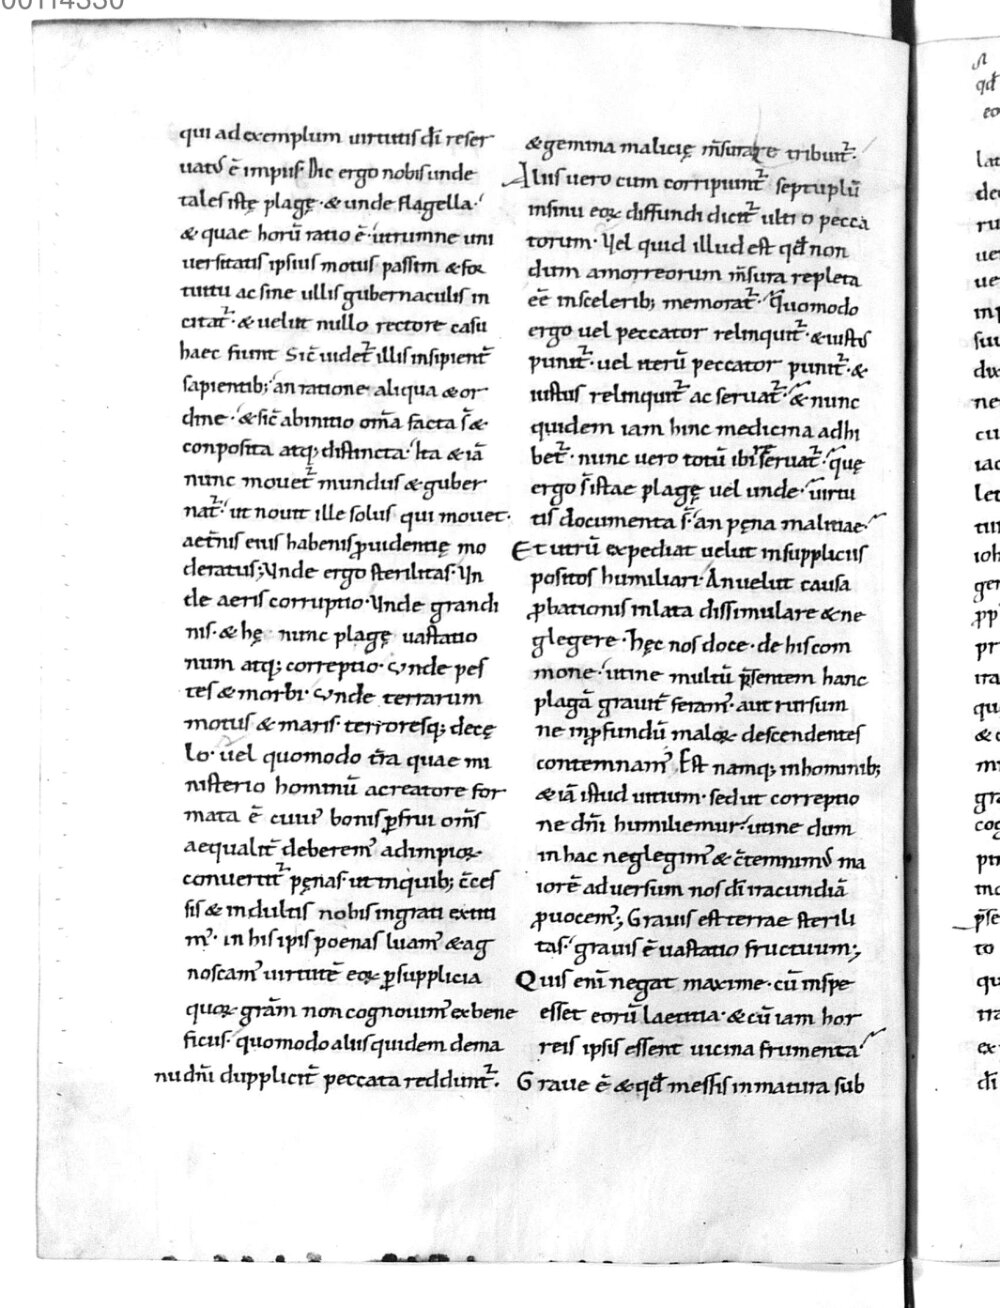 00114330
qui ad exemplum uirtutis dī reser
uatꝰ ē impiis. Dic ergo nobis unde
tales istę plagę · & unde flagella ·
& quae horū ratio ē · utrumne uni
uersitatis ipsius motus passim & for
tuitu ac sine ullis gubernaculis in
citat᷑ · & uelut nullo rectore casu
haec fiunt sic̄ uidet᷑ illis insipient̄
sapientib; an ratione aliqua & or
dine · & sic̄ ab initio om̄a facta s̄ &
conposita atq; distincta · Ita & iā
nunc mouet᷑ mundus & guber
nat᷑ · ut nouit ille solus qui mouet ·
aet̄nis eius habenis ꝓuidentię mo
deratus; Vnde ergo sterilitas · Vn
de aeris corruptio · Vnde grandi
nis · & hę nunc plagę uastatio
num atq; correptio · Vnde pes
tes & morbi · Vnde terrarum
motus & maris · terroresq; de cę
lo · uel quomodo t̄ra quae mi
nisterio hominū a creatore for
mata ē cuiꝰ bonis ꝓfrui om̄s
aequalit̄ deberemꝰ ad impioꝝ
conuertit᷑ pęnas · ut in quib; c̄ces
sis & indultis nobis ingrati extiti
mꝰ · in his ipis poenas luamꝰ & ag
noscamꝰ uirtutē eoꝝ ꝑ supplicia
quoꝝ grām non cognouimꝰ ex bene
ficiis · quomodo aliis quidem de ma
nu dn̄i dupplicit̄ peccata reddunt᷑ ·
& gemina malicię m̄surare tribuit᷑ ·
Aliis uero cum corripiunt᷑ septuplū
in sinu eoꝝ diffundi dicit᷑ ultio pecca
torum · Vel quid illud est qd̄ non
dum amorreorum m̄sura repleta
eē in scelerib; memorat᷑ · Quomodo
ergo uel peccator relinquit᷑ · & iustꝰ
punit᷑ · uel iterū peccator punit᷑ · &
iustus relinquit᷑ ac seruat᷑ · & nunc
quidem iam hinc medicina adhi
bet᷑ · nunc uero totū ibi seruat᷑ · quę
ergo s̄ istae plagę uel unde · uirtu
tis documenta s̄ · an pęna malitiae ·
Et utrū expediat uelut in suppliciis
positos humiliari · An uelut causa
ꝓbationis inlata dissimulare & ne
glegere · hęc nos doce · de his com
mone · utine multū p̄sentem hanc
plagā grauit̄ feramꝰ · aut rursum
ne in ꝓfundū maloꝝ descendentes
contemnamꝰ · Est namq; in hominib;
& iā istud uitium · sed ut correptio
ne dn̄i humiliemur · utine dum
in hac neglegimꝰ & c̄temnimꝰ ma
iorē aduersum nos dī iracundiā
ꝓuocemꝰ; Grauis est terrae sterili
tas · grauis ē uastatio fructuum;
Quis enī negat maxime · cū in spe
esset eorū laetitia · & cū iam hor
reis ipsis essent uicina frumenta ·
Graue ē & qd̄ messis inmatura sub